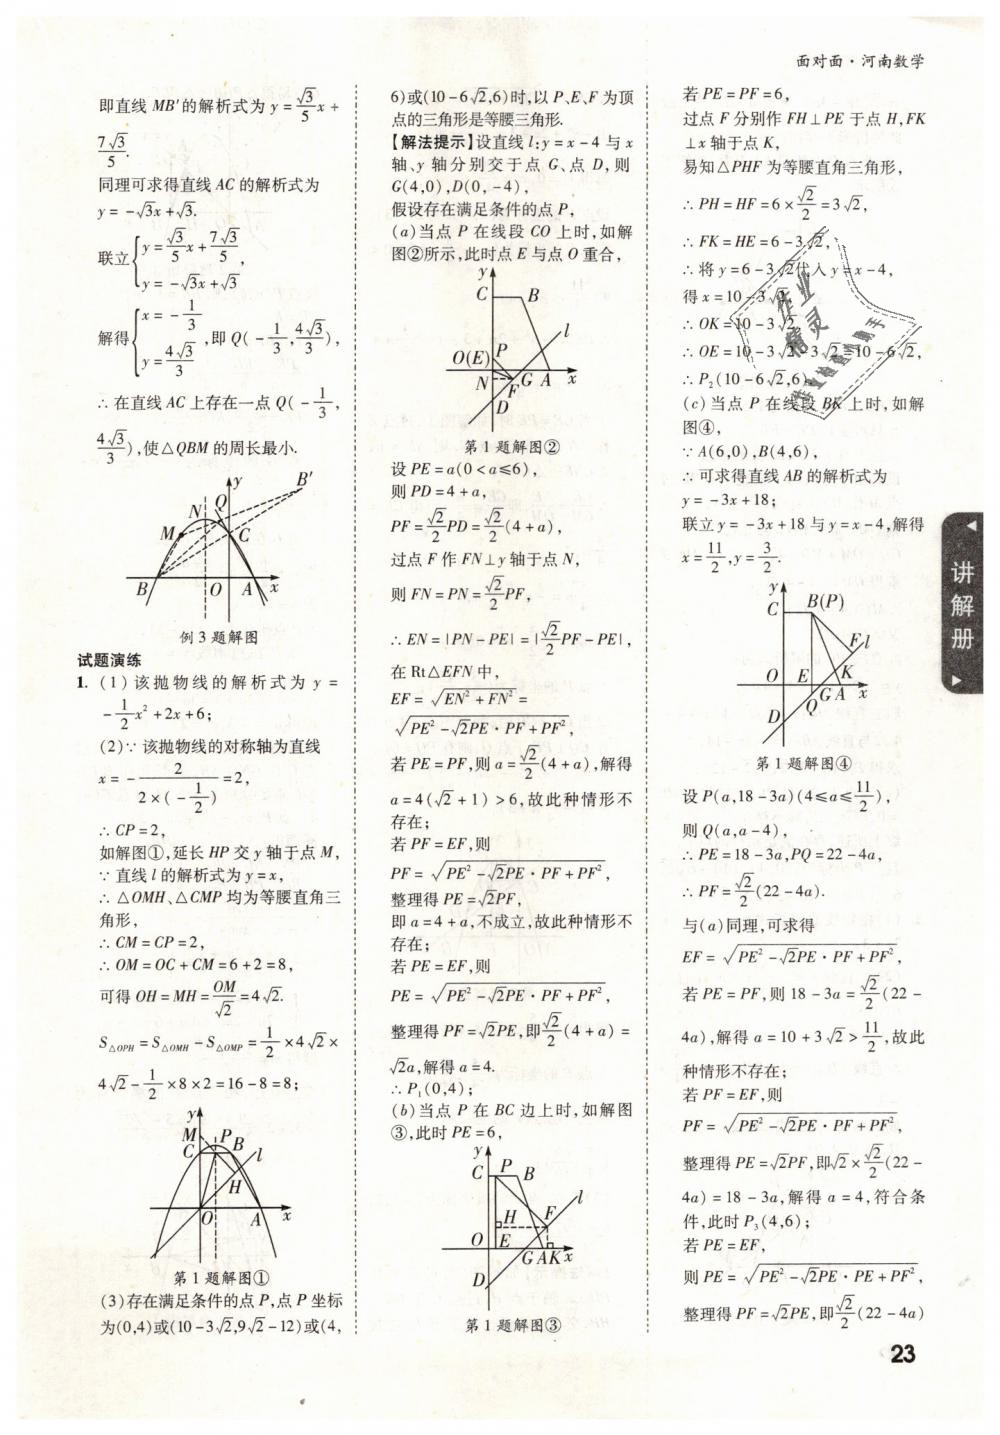 面对面·河南数学
即直线 MB′的解析式为 y = √3/5 x +
7√3/5.
同理可求得直线 AC 的解析式为
y = -√3x + √3.
联立{y = √3/5 x + 7√3/5,
y = -√3x + √3
解得{x = -1/3
y = 4√3/3
,即 Q( -1/3, 4√3/3),
∴ 在直线 AC 上存在一点 Q( -1/3,
4√3/3),使△QBM 的周长最小.
y B′
N Q
M C
B O A x
例 3 题解图
试题演练
1. (1) 该抛物线的解析式为 y =
-1/2 x² + 2x + 6;
(2)∵ 该抛物线的对称轴为直线
x = - 2/(2×(-1/2)) = 2,
∴ CP = 2,
如解图①,延长 HP 交 y 轴于点 M,
∵ 直线 l 的解析式为 y = x,
∴ △OMH、△CMP 均为等腰直角三
角形,
∴ CM = CP = 2,
∴ OM = OC + CM = 6 + 2 = 8,
可得 OH = MH = OM/√2 = 4√2.
S△OPH = S△OMH - S△OMP = 1/2 × 4√2 ×
4√2 - 1/2 × 8 × 2 = 16 - 8 = 8;
y
M P
C B l
H
O A x
第 1 题解图①
(3)存在满足条件的点 P,点 P 坐标
为(0,4)或(10 - 3√2,9√2 - 12)或(4,
6)或(10 - 6√2,6)时,以 P、E、F 为顶
点的三角形是等腰三角形.
【解法提示】设直线 l:y = x - 4 与 x
轴、y 轴分别交于点 G、点 D,则
G(4,0),D(0, -4),
假设存在满足条件的点 P,
(a)当点 P 在线段 CO 上时,如解
图②所示,此时点 E 与点 O 重合,
y
C B
l
O(E) P
N F G A x
D
第 1 题解图②
设 PE = a(0 < a ≤ 6),
则 PD = 4 + a,
PF = √2/2 PD = √2/2 (4 + a),
过点 F 作 FN⊥y 轴于点 N,
则 FN = PN = √2/2 PF,
∴ EN = |PN - PE| = |√2/2 PF - PE|,
在 Rt△EFN 中,
EF = √(EN² + FN²) =
√(PE² - √2PE·PF + PF²),
若 PE = PF,则 a = √2/2 (4 + a),解得
a = 4(√2 + 1) > 6,故此种情形不
存在;
若 PF = EF,则
PF = √(PE² - √2PE·PF + PF²),
整理得 PE = √2PF,
即 a = 4 + a,不成立,故此种情形不
存在;
若 PE = EF,则
PE = √(PE² - √2PE·PF + PF²),
整理得 PF = √2PE,即√2/2 (4 + a) =
√2a,解得 a = 4.
∴ P₁(0,4);
(b)当点 P 在 BC 边上时,如解图
③,此时 PE = 6,
y
C P B
l
H F
O E G A K x
D
第 1 题解图③
若 PE = PF = 6,
过点 F 分别作 FH⊥PE 于点 H,FK
⊥x 轴于点 K,
易知△PHF 为等腰直角三角形,
∴ PH = HF = 6 × √2/2 = 3√2,
∴ FK = HE = 6 - 3√2,
∴ 将 y = 6 - 3√2代入 y = x - 4,
得 x = 10 - 3√2,
∴ OK = 10 - 3√2,
∴ OE = 10 - 3√2 - 3√2 = 10 - 6√2,
∴ P₂(10 - 6√2,6);
(c)当点 P 在线段 BK 上时,如解
图④,
∵ A(6,0),B(4,6),
∴ 可求得直线 AB 的解析式为
y = -3x + 18;
联立 y = -3x + 18 与 y = x - 4,解得
x = 11/2,y = 3/2.
y
C B(P)
F l
O E K
G A x
D Q
第 1 题解图④
设 P(a,18 - 3a)(4 ≤ a ≤ 11/2),
则 Q(a,a - 4),
∴ PE = 18 - 3a,PQ = 22 - 4a,
∴ PF = √2/2 (22 - 4a).
与(a)同理,可求得
EF = √(PE² - √2PE·PF + PF²),
若 PE = PF,则 18 - 3a = √2/2 (22 -
4a),解得 a = 10 + 3√2 > 11/2,故此
种情形不存在;
若 PF = EF,则
PF = √(PE² - √2PE·PF + PF²),
整理得 PE = √2PF,即√2 × √2/2 (22 -
4a) = 18 - 3a,解得 a = 4,符合条
件,此时 P₃(4,6);
若 PE = EF,
则 PE = √(PE² - √2PE·PE + PF²),
整理得 PF = √2PE,即√2/2 (22 - 4a)
讲解册
作业
精灵
23